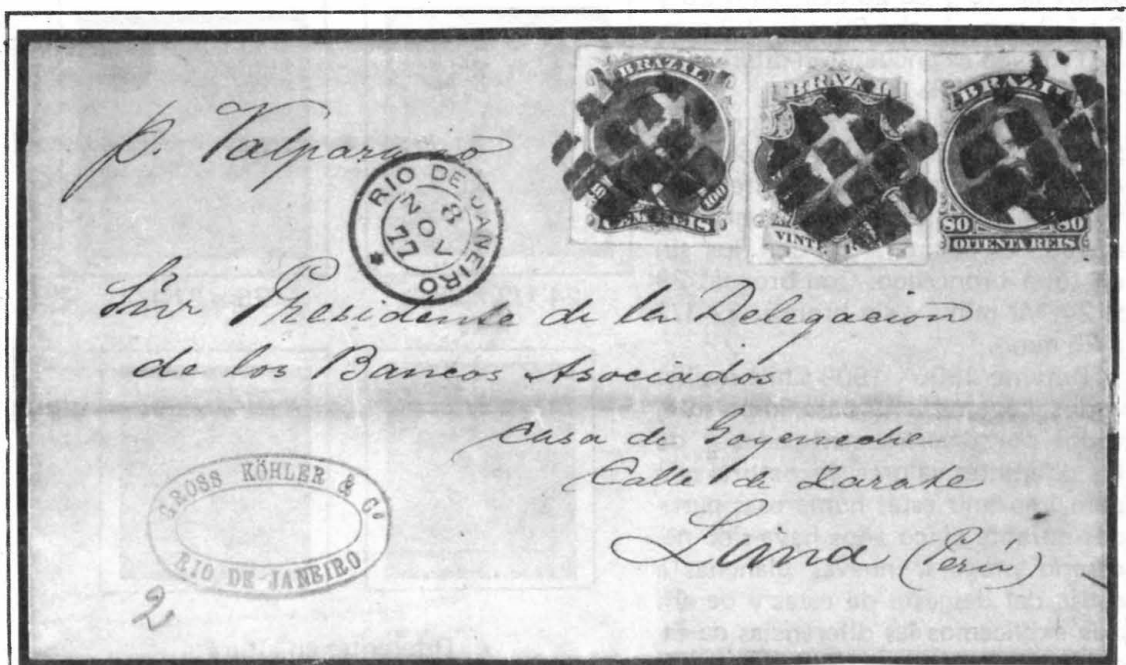 p. Valparaiso
BRAZIL
100 100
CEM REIS
BRAZIL
VINTE
BRAZIL
80 80
OITENTA REIS
RIO DE JANEIRO
8
NOV
77
Sñr Presidente de la Delegacion
de los Bancos Asociados
Casa de Goyeneche
Calle de Zarate
Lima (Perú)
GROSS KÖHLER & Co
RIO DE-JANEIRO
2